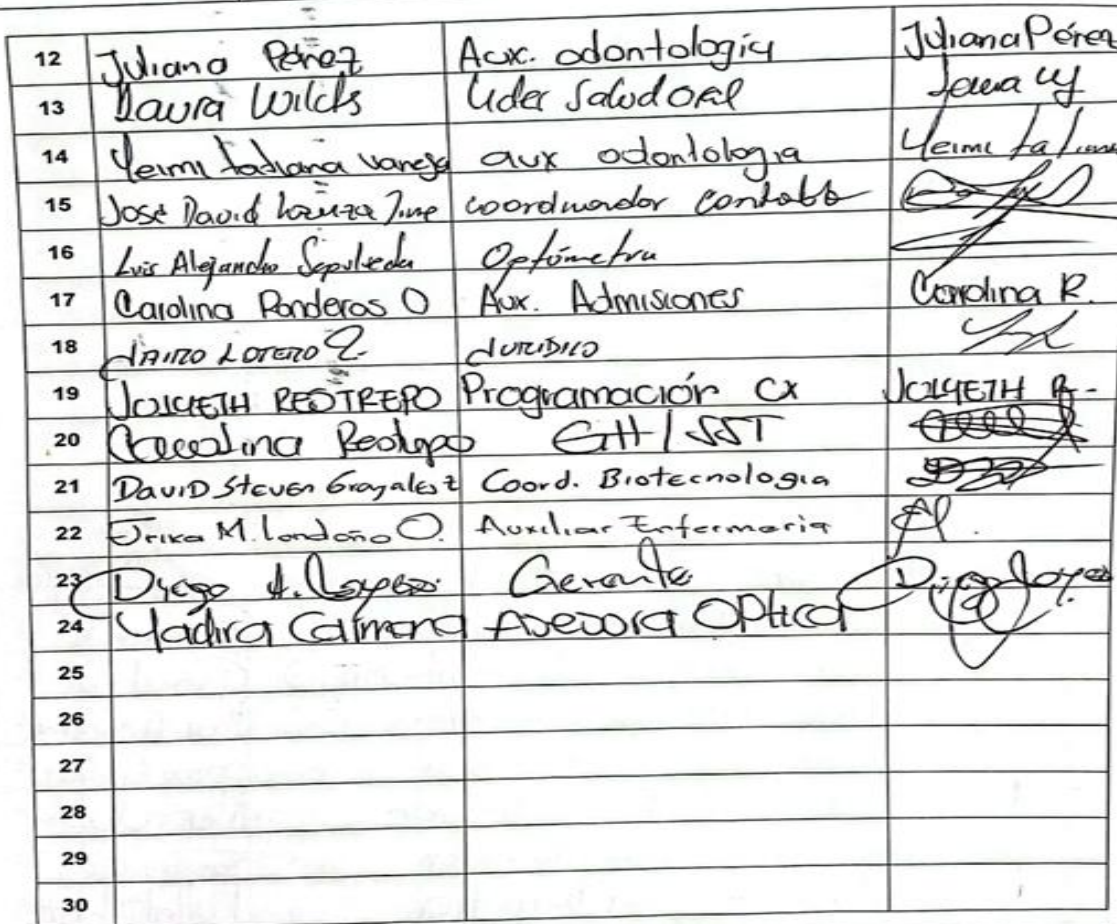 12 Juliana Pérez Aux. odontología Juliana Pérez
13 Laura Wilches Lider Salud Oral
14 Yeimi tatiana vanegas aux odontologia Yeimi tatiana
15 José David coordinador contable
16 Luis Alejandro Sepulveda Optómetra
17 Carolina Ronderos O Aux. Admisiones Carolina R.
18 JAIRO LOTERO JURIDICO
19 RESTREPO Programación CX
20 Carolina Restrepo GH/SST
21 DAVID Steven Grajales Z Coord. Biotecnologia
22 Erika M. Londoño O. Auxiliar Enfermeria
23 Diego A. Lopez Gerente Diego Lopez
24 Yadira Asesora OPtica
25
26
27
28
29
30